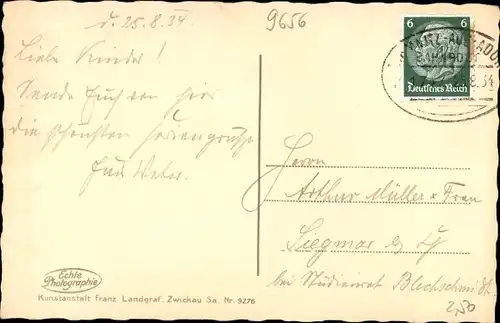 d. 25.8.34
9656
Liebe Kinder!
Sende Euch von hier
die schönsten Feriengrüße
Euer Vater.
6 6
Deutsches Reich
BAHNPOST
8.34
Herrn
Arthur Müller u Frau
Siegmar
bei Studienrat Blechschmidt
Echte
Photographie
Kunstanstalt Franz Landgraf, Zwickau Sa. Nr. 9276
2,50